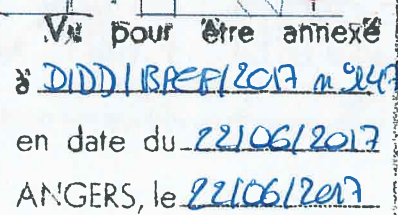 Vu pour être annexé
à DIDD/BPEF/2017 n 247
en date du 22/06/2017
ANGERS, le 22/06/2017